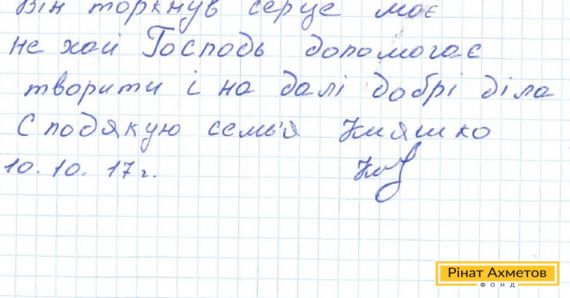 Він торкнув серце моє
не хай Господь допомогає
творити і на далі добрі діла
С подякую семья Княшко
10.10.17г.
Рінат Ахметов
ФОНД